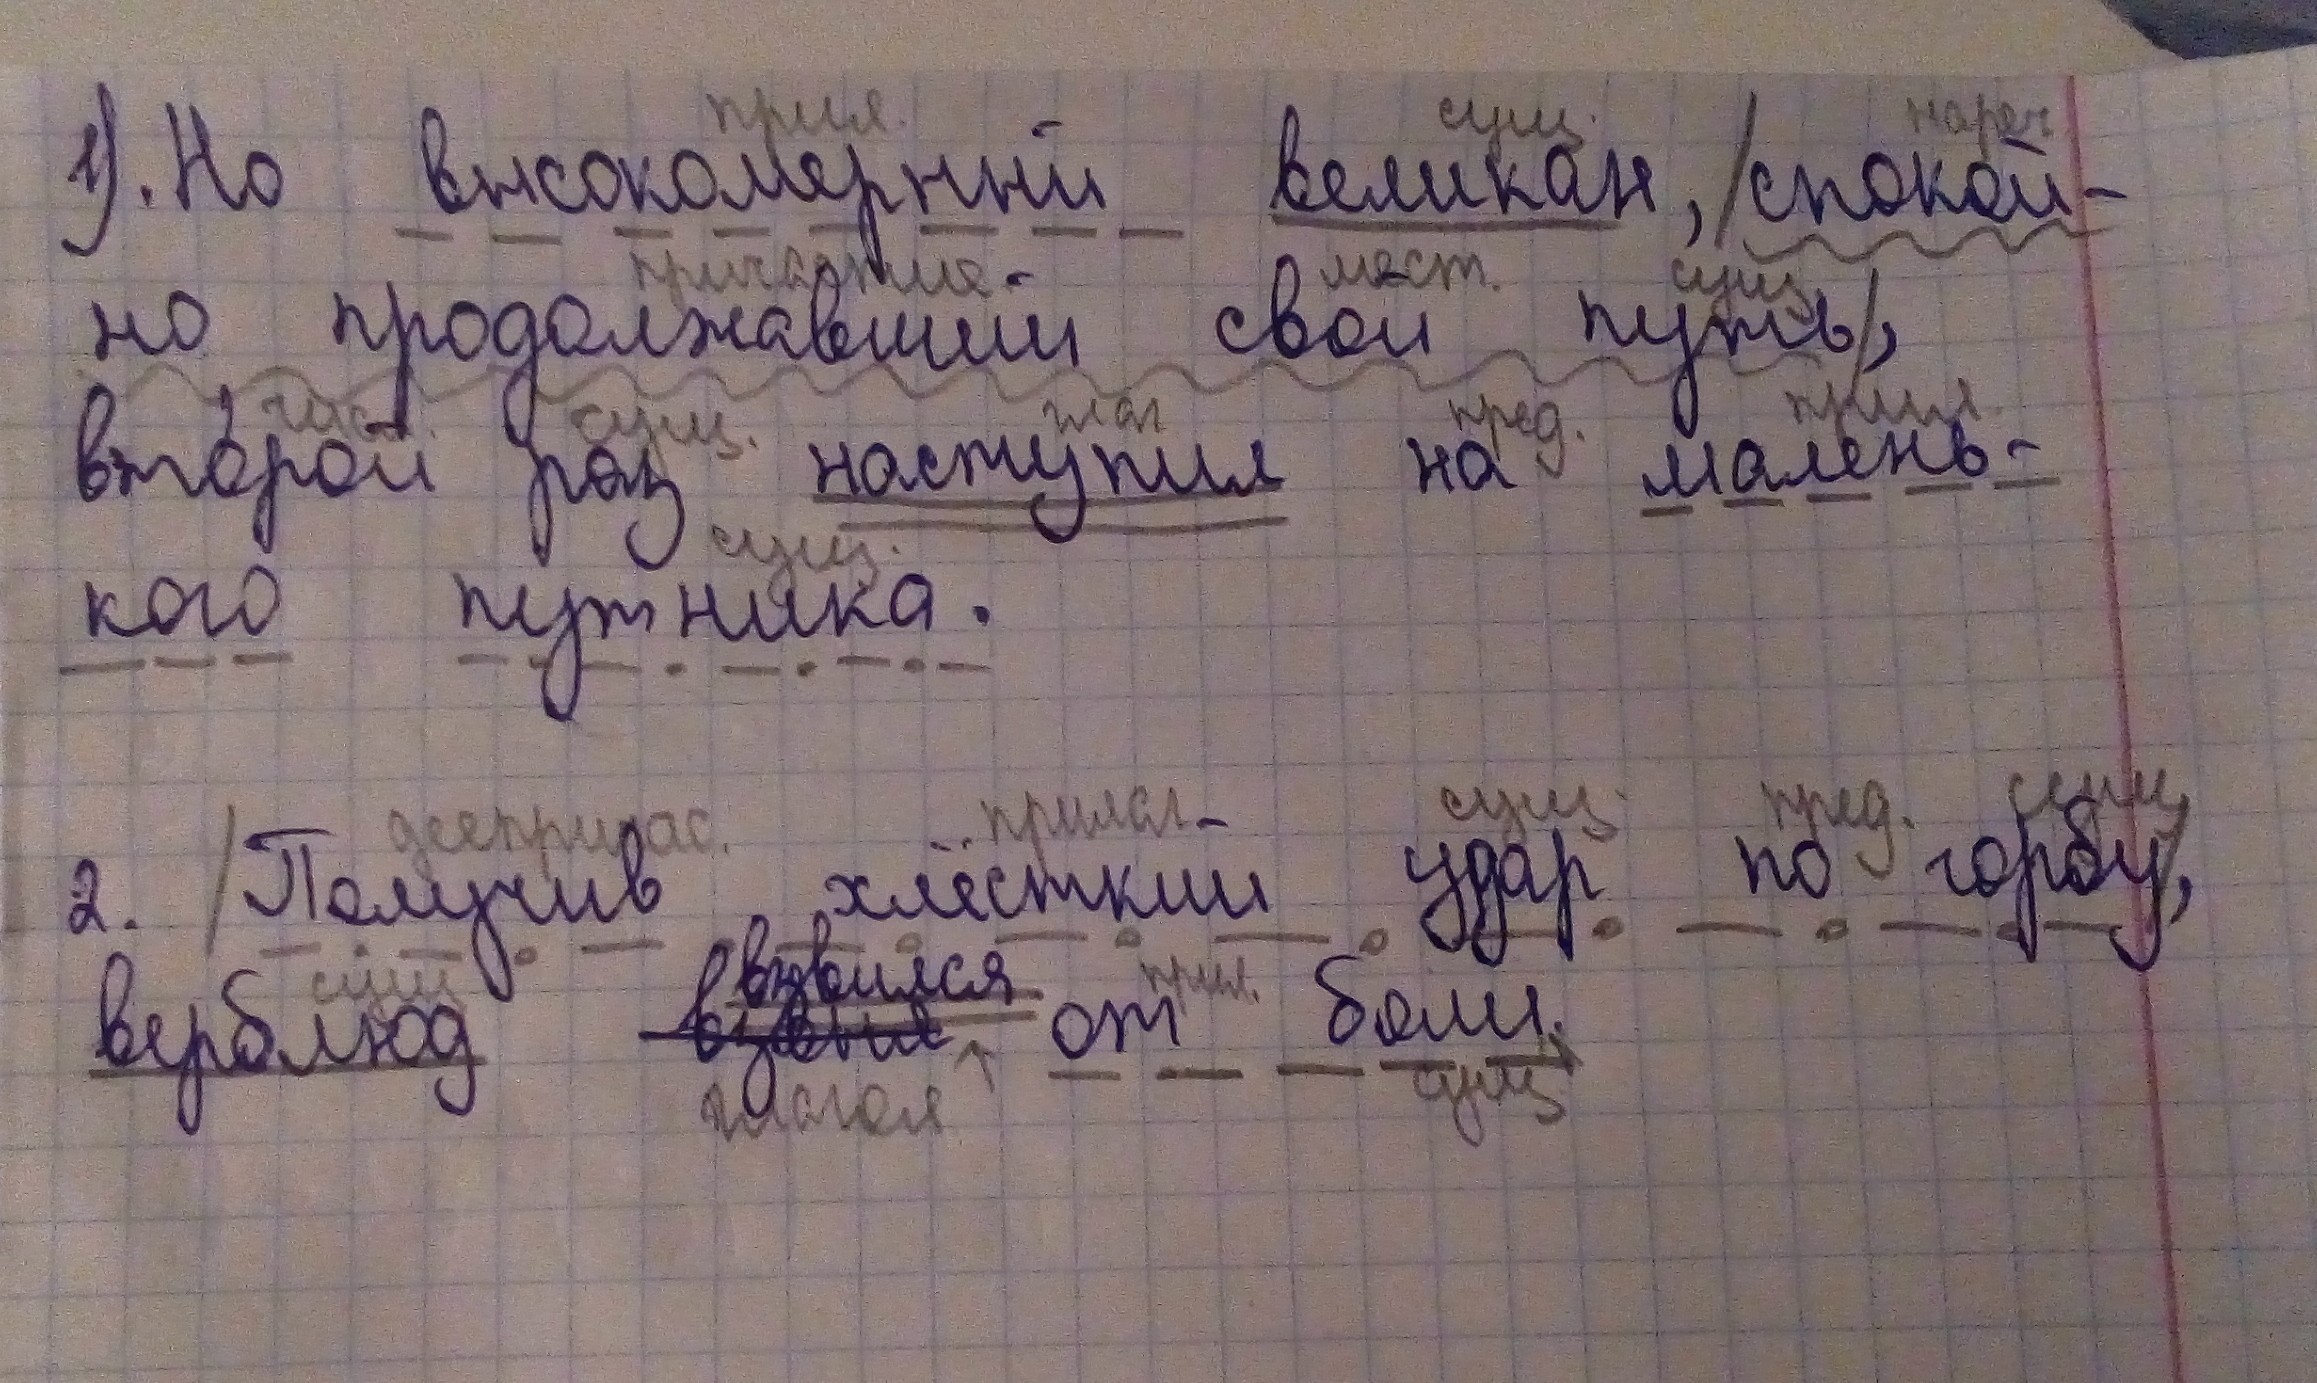 прил. сущ. нареч
1). Но высокомерный великан, /спокой-
причастие мест. сущ.
но продолжавший свой путь/,
числ. сущ. глаг пред. прил.
второй раз наступил на малень-
сущ.
кого путника.
деепричас. прилаг. сущ. пред. сущ
2. /Получив хлёсткий удар по горбу/,
сущ взвоился прил.
верблюд от боли.
глагол сущ